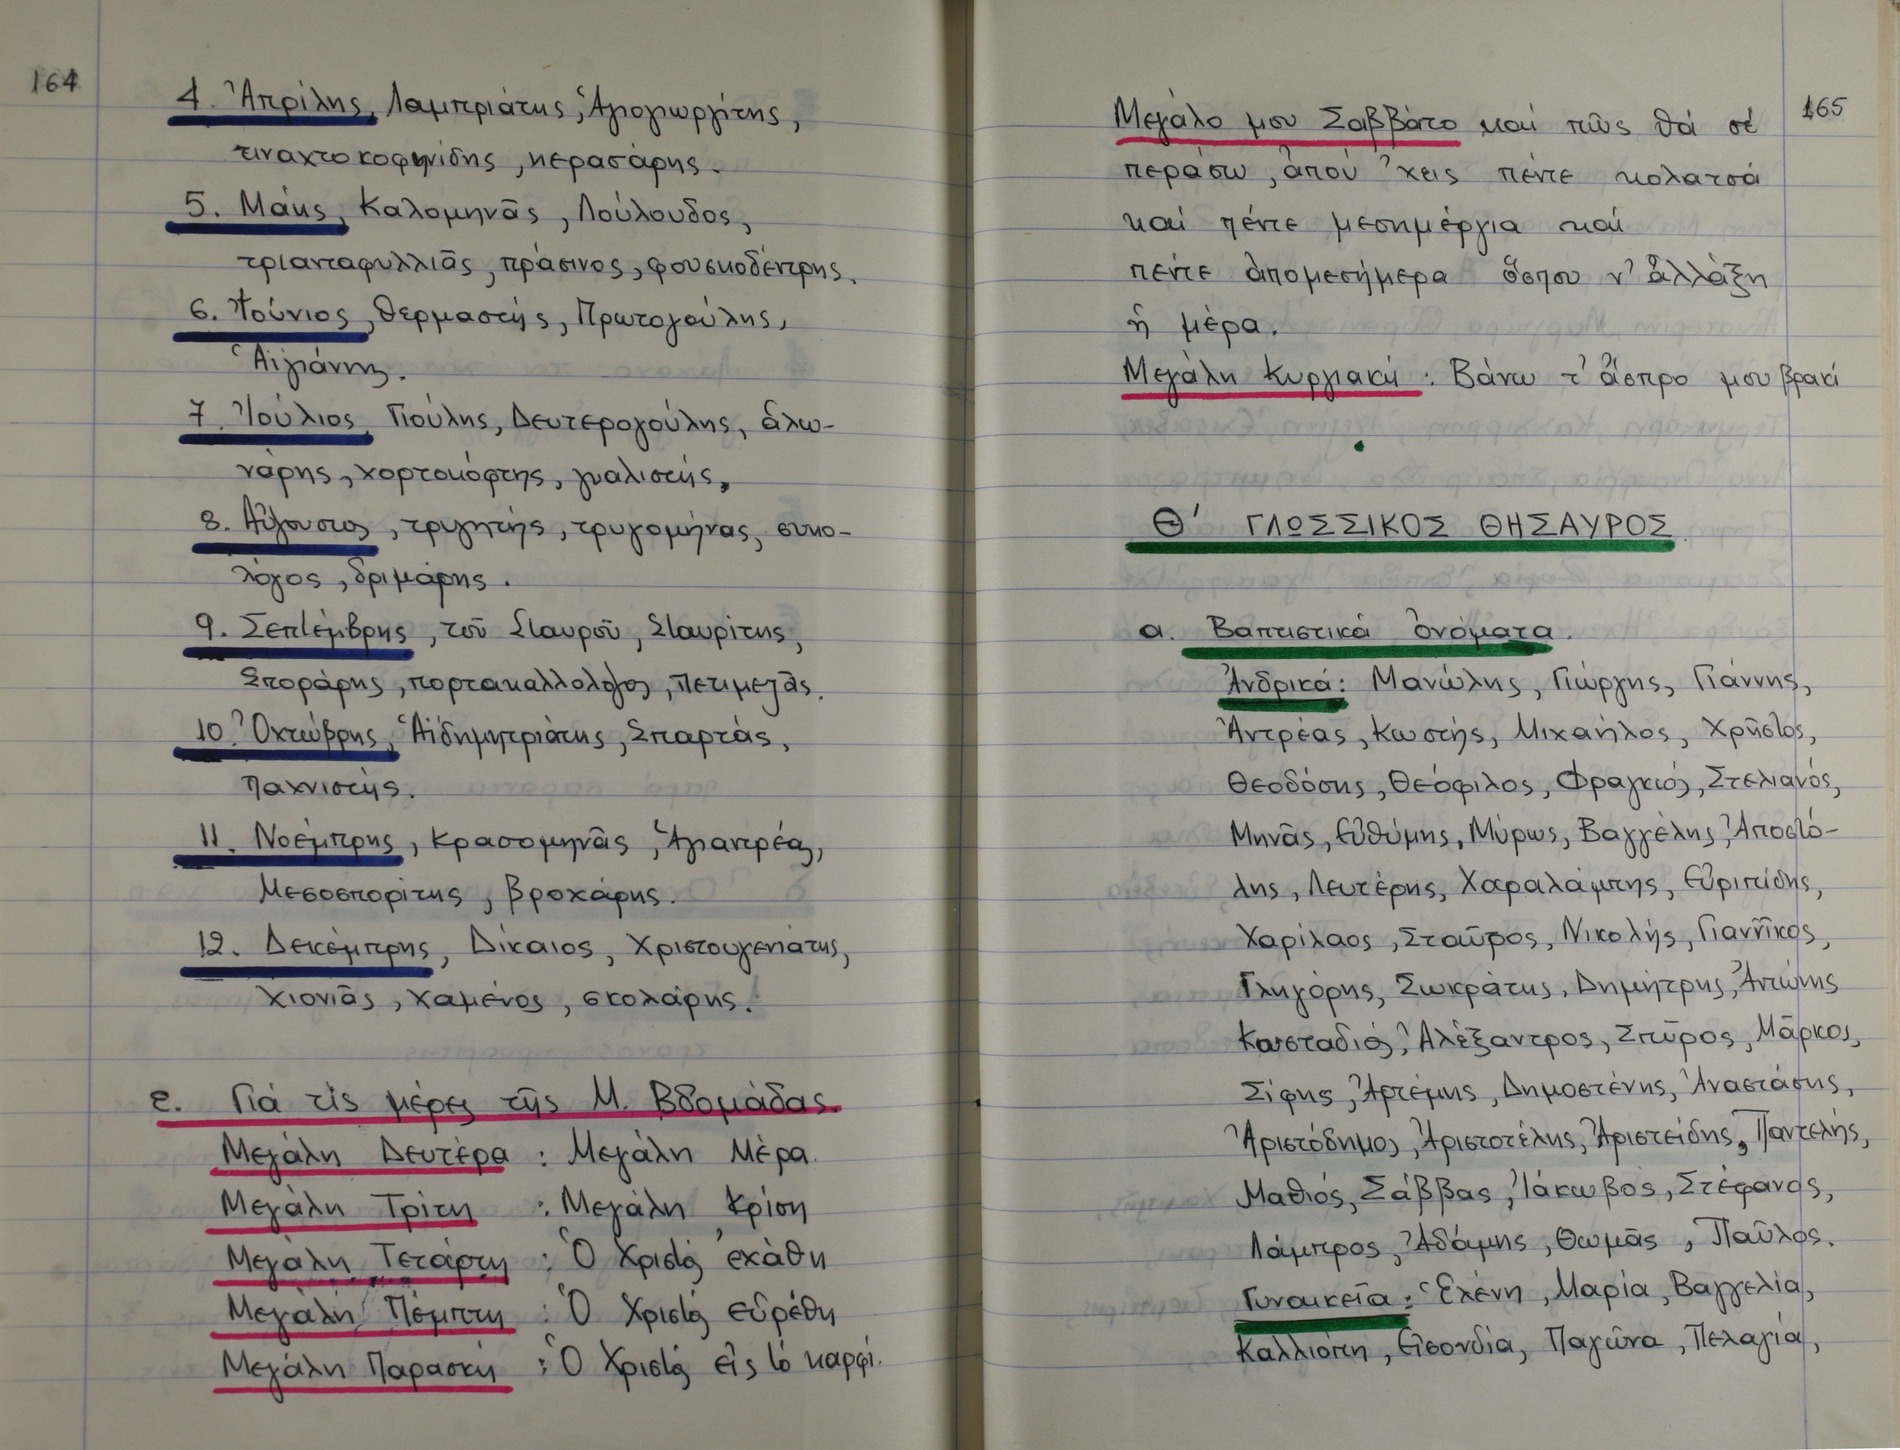 164
4. Ἀπρίλης, Λαμπριάτης, Ἁγιογιωργίτης,
τιναχτοκοφινίδης, κερασάρης.
5. Μάης, Καλομηνᾶς, Λούλουδος,
τριανταφυλλιᾶς, πράσινος, φουσκοδέντρης.
6. Ἰούνιος, θερμαστής, Πρωτογούλης,
Ἁϊγιάννης.
7. Ἰούλιος, Γιούλης, Δευτερογούλης, ἁλω-
νάρης, χορτοκόφτης, γυαλιστής,
8. Αὔγουστος, τρυγητής, τρυγομήνας, συκο-
λόγος, δριμάρης.
9. Σεπτέμβρης, τοῦ Σταυροῦ, Σταυρίτης,
Σποράρης, πορτακαλλολόγος, πετιμεζᾶς.
10. Ὀχτώβρης, Ἁϊδημητριάτης, Σπαρτάς,
παχνιστής.
11. Νοέμπρης, Κρασομηνᾶς, Ἁγιαντρέας,
Μεσοσπορίτης, βροχάρης.
12. Δεκέμπρης, Δίκαιος, Χριστουγενιάτης,
χιονιᾶς, χαμένος, σκολάρης.
ε. Γιά τίς μέρες τῆς Μ. Βδομάδας.
Μεγάλη Δευτέρα : Μεγάλη Μέρα.
Μεγάλη Τρίτη : Μεγάλη Κρίση
Μεγάλη Τετάρτη : Ὁ Χριστός ἐχάθη
Μεγάλη Πέμπτη : Ὁ Χριστός εὑρέθη
Μεγάλη Παρασκή : Ὁ Χριστός εἰς τό καρφί.
165
Μεγάλο μου Σαββάτο καί πῶς θά σέ
περάσω, ἁπού 'χεις πέντε κολατσά
καί πέντε μεσημέργια καί
πέντε ἀπομεσήμερα ὥσπου ν' ἀλλάξη
ἡ μέρα.
Μεγάλη Κυργιακή : Βάνω τ' ἄσπρο μου βρακί
Θ' ΓΛΩΣΣΙΚΟΣ ΘΗΣΑΥΡΟΣ.
α. Βαπτιστικά ὀνόματα.
Ἀνδρικά: Μανώλης, Γιώργης, Γιάννης,
Ἀντρέας, Κωστής, Μιχαήλος, Χρῆστος,
Θεοδόσης, Θεόφιλος, Φραγκιός, Στελιανός,
Μηνᾶς, Εὐθύμης, Μύρως, Βαγγέλης, Ἀποστό-
λης, Λευτέρης, Χαραλάμπης, Εὐριπίδης,
Χαρίλαος, Σταῦρος, Νικολής, Γιαννῖκος,
Γληγόρης, Σωκράτης, Δημήτρης, Ἀντώνης
Κωσταδιός, Ἀλέξαντρος, Σπῦρος, Μᾶρκος,
Σίφης, Ἀρτέμης, Δημοστένης, Ἀναστάσης,
Ἀριστόδημος, Ἀριστοτέλης, Ἀριστείδης, Παντελής,
Μαθιός, Σάββας, Ἰάκωβος, Στέφανος,
Λάμπρος, Ἀδάμης, Θωμᾶς, Παῦλος.
Γυναικεῖα: Ἑλένη, Μαρία, Βαγγελία,
Καλλιόπη, Εἰσονδία, Παγώνα, Πελαγία,